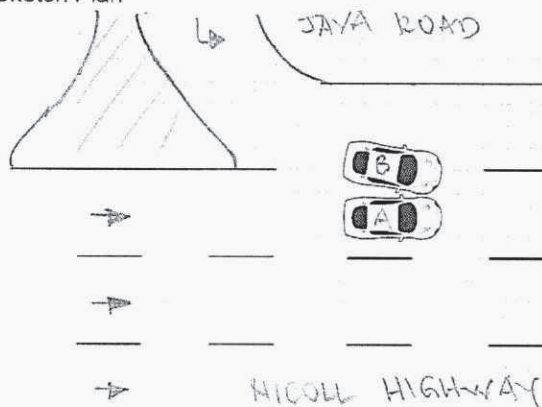 Sketch Plan
JAYA ROAD
B
A
NICOLL HIGHWAY